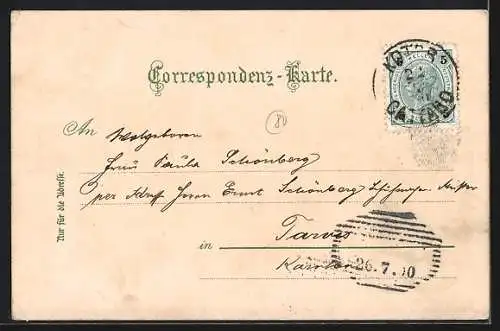 KOTOR
CATTARO
5
Correspondenz-Karte.
80
An Wolgeboren
Frau Paula Schönberg
per Adr. Herrn Ernst Schönberg
in Tarvis
Kärnten
26.7.00
Nur für die Adresse.